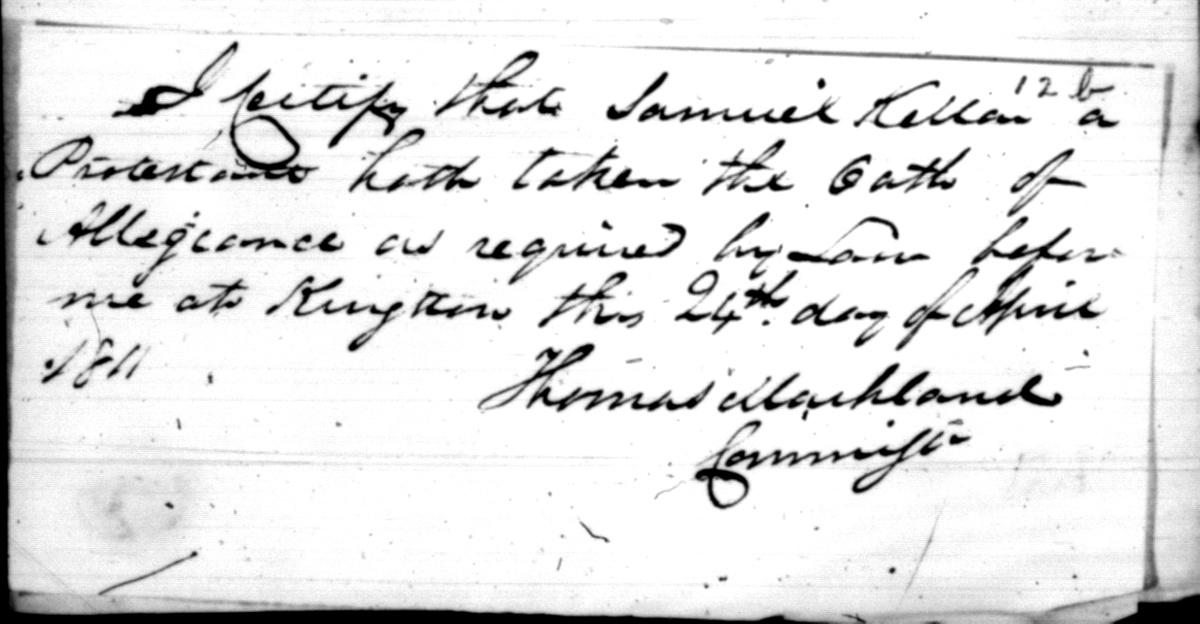 12b
I Certify that Samuel Kellar a
Protestant hath taken the Oath of
Allegeance as required by Law before
me at Kingston this 24th. day of April
1811
Thomas Markland
Commisr